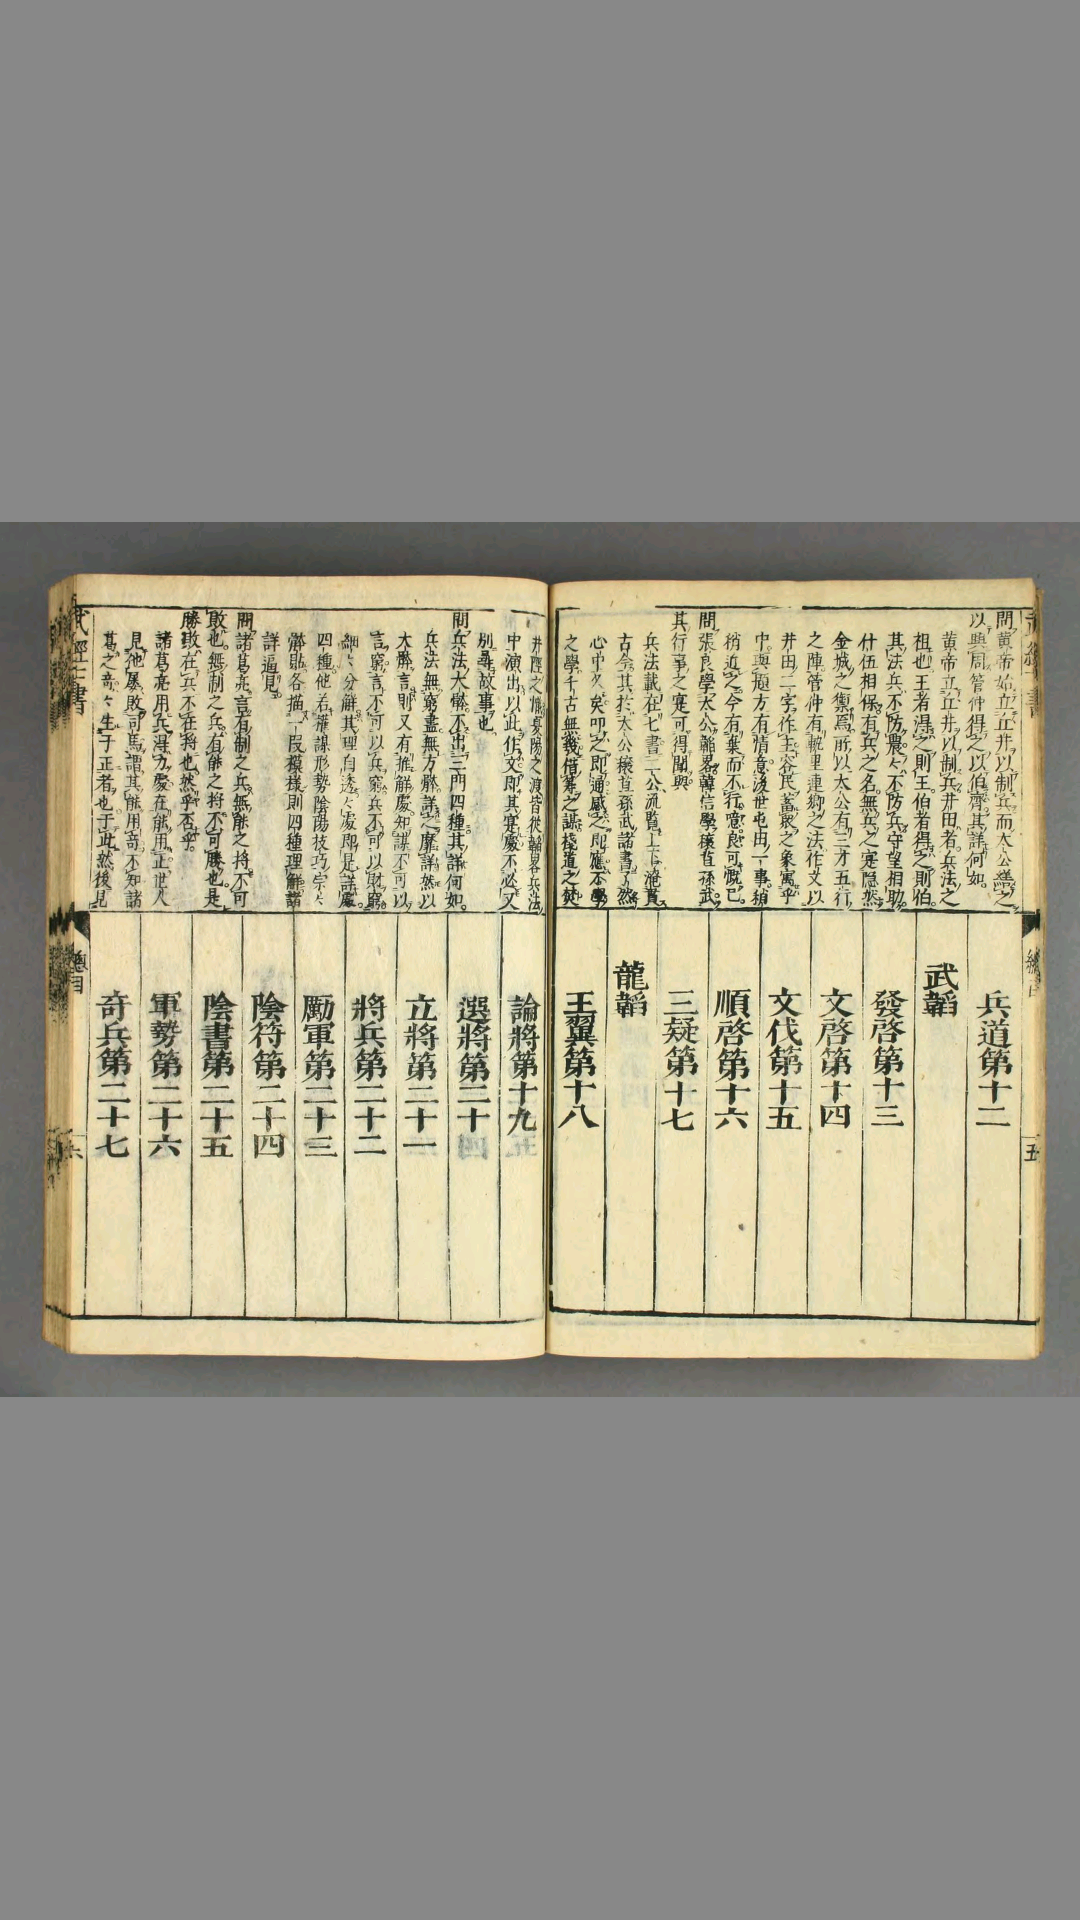 問黄帝始立丘井以制兵而太公繼之
以興周管仲得之以伯齊其詳何如
黄帝立丘井以制兵井田者兵法之
祖也王者得之則王伯者得之則伯
其法兵不防農々不防兵守望相助
什伍相保有兵之名無兵之寔隐然
金城之衛焉所以太公有三才五行
之陣管仲有軌里連鄉之法作文以
井田二字作主容民蓄衆之象寓乎
中與題方有情意後世屯田一事稍
稍近之今有葉而不行噫良可慨已
問張良學太公韜畧韓信學穰苴孫武
其行事之寔可得聞與
兵法載在七書二公流覧上下淹貫
古今其於太公穰苴孫武諸書了然
心中久矣叩之即通感之即應不學
之學千古無幾借箸之謀棧道之燒
兵道第十二
武韜
發啓第十三
文啓第十四
文伐第十五
順啓第十六
三疑第十七
龍韜
王翼第十八
五
井陘之戰夏陽之渡皆從韜畧兵法
中演出以此作文即其寔處不必又
別尋故事也
問兵法大槩不出三門四種其詳何如
兵法無窮盡無方體詳之靡詳然以
大槩言則又有推解處知謀不可以
言窮言不可以兵窮兵不可以財窮
四種他若權謀形勢陰陽技巧宗々
細々分解其理自透々處即是詳處
觧題各描一段模樣則四種理觧諸
詳逼見
問諸葛亮言有制之兵無能之将不可
敗也無制之兵有能之将不可勝也是
勝敗在兵不在將也然乎否乎
諸葛亮用兵得力處在能用正世人
見他屡敗司馬謂其能用竒不知諸
葛之竒々生于正者也于此然後見
論將第十九
選將第二十
立將第二十一
將兵第二十二
勵軍第二十三
陰符第二十四
陰書第二十五
軍勢第二十六
奇兵第二十七
武經七書
總目
六